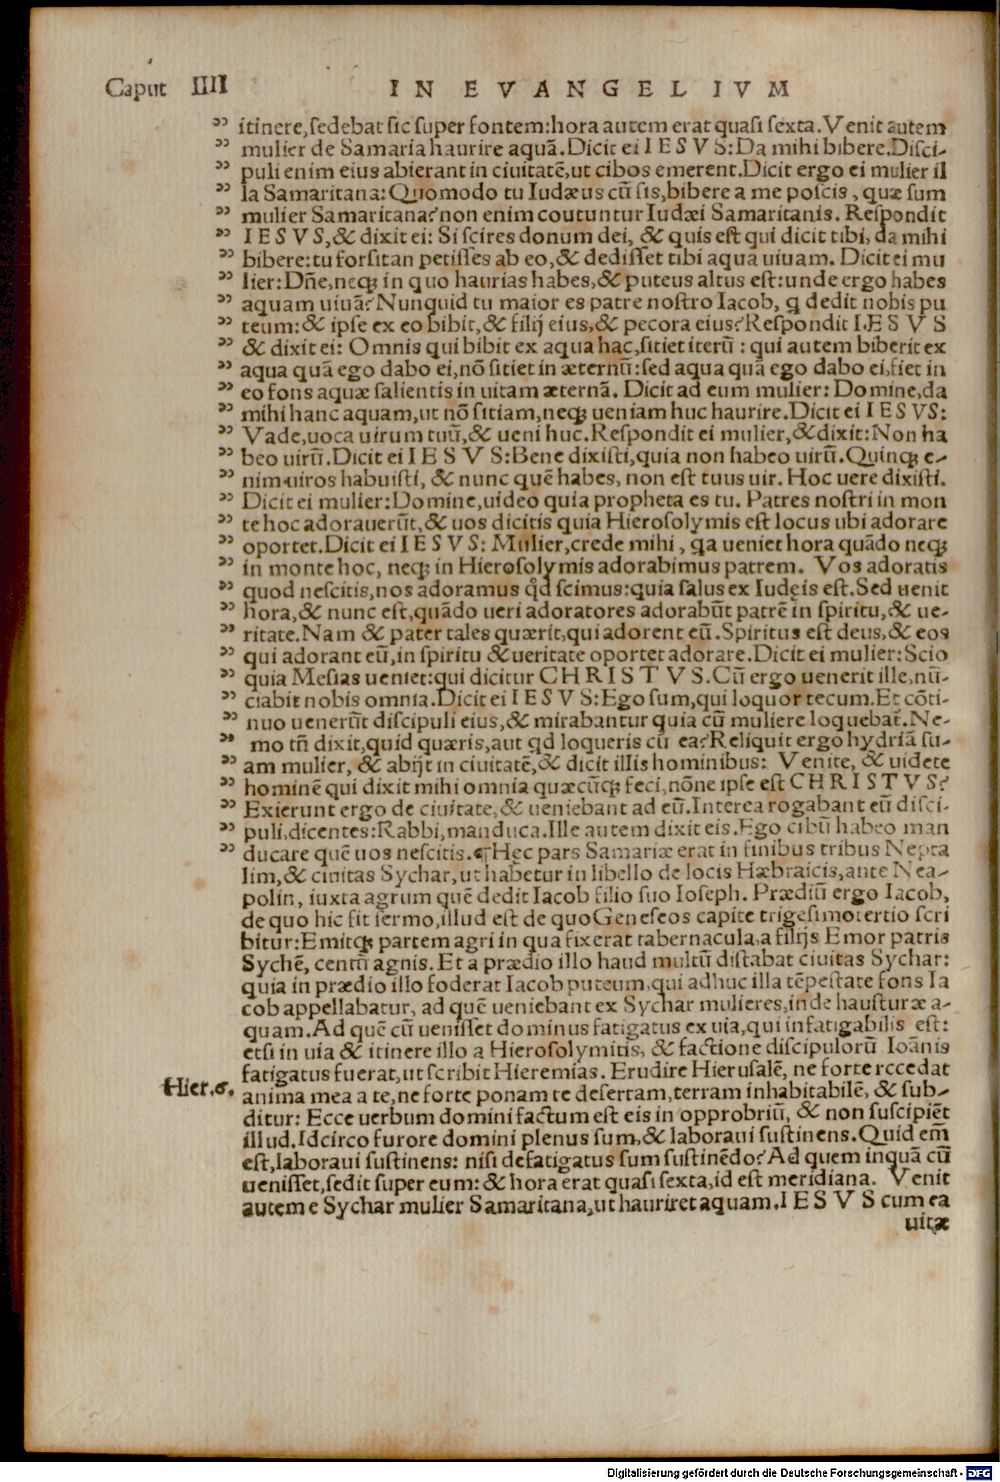 Caput IIII IN EVANGELIVM
„ itinere,sedebat sic super fontem:hora autem erat quasi sexta.Venit autem
„ mulier de Samaria haurire aquã.Dicit ei IESVS:Da mihi bibere.Disci-
„ puli enim eius abierant in ciuitatẽ,ut cibos emerent.Dicit ergo ei mulier il
„ la Samaritana:Quomodo tu Iudæus cũ sis,bibere a me poscis, quæ sum
„ mulier Samaritana?non enim coutuntur Iudæi Samaritanis. Respondit
„ IESVS,& dixit ei: Si scires donum dei, & quis est qui dicit tibi, da mihi
„ bibere:tu forsitan petisses ab eo,& dedisset tibi aquã uiuam. Dicit ei mu
„ lier:Dñe,neqʒ in quo haurias habes,& puteus altus est:unde ergo habes
„ aquam uiuã?Nunquid tu maior es patre nostro Iacob, q̃ dedit nobis pu
„ teum:& ipse ex eo bibit,& filij eius,& pecora eius?Respondit IESVS
„ & dixit ei: Omnis qui bibit ex aqua hac,sitiet iterũ : qui autem biberit ex
„ aqua quã ego dabo ei,nõ sitiet in æternũ:sed aqua quã ego dabo ei,fiet in
„ eo fons aquæ salientis in uitam æternã. Dicit ad eum mulier: Domine,da
„ mihi hanc aquam,ut nõ sitiam,neqʒ ueniam huc haurire.Dicit ei IESVS:
„ Vade,uoca uirum tuũ,& ueni huc.Respondit ei mulier,&dixit:Non ha
„ beo uirũ.Dicit ei IESVS:Bene dixisti,quia non habeo uirũ.Quinqʒ e-
„ nim uiros habuisti, & nunc quẽ habes, non est tuus uir. Hoc uere dixisti.
„ Dicit ei mulier:Domine,uideo quia propheta es tu. Patres nostri in mon
„ te hoc adorauerũt,& uos dicitis quia Hierosolymis est locus ubi adorare
„ oportet.Dicit ei IESVS: Mulier,crede mihi, qa ueniet hora quãdo neqʒ
„ in monte hoc, neqʒ in Hierosolymis adorabimus patrem. Vos adoratis
„ quod nescitis,nos adoramus qd scimus:quia salus ex Iudęis est.Sed uenit
„ hora,& nunc est,quãdo ueri adoratores adorabũt patrẽ in spiritu,& ue-
„ ritate.Nam & pater tales quærit,qui adorent eũ.Spiritus est deus,& eos
„ qui adorant eũ,in spiritu & ueritate oportet adorare.Dicit ei mulier:Scio
„ quia Mesias ueniet:qui dicitur CHRISTVS.Cũ ergo uenerit ille,nũ-
„ ciabit nobis omnia.Dicit ei IESVS:Ego sum,qui loquor tecum.Et cõti-
„ nuo uenerũt discipuli eius,& mirabantur quia cũ muliere loquebat̃.Ne-
„ mo tñ dixit,quid quæris,aut qd loqueris cũ ea?Reliquit ergo hydriã su-
„ am mulier, & abijt in ciuitatẽ,& dicit illis hominibus: Venite, & uidete
„ hominẽ qui dixit mihi omnia quæcũqʒ feci,nõne ipse est CHRISTVS?
„ Exierunt ergo de ciuitate,& ueniebant ad eũ.Interea rogabant eũ disci-
„ puli,dicentes:Rabbi,manduca.Ille autem dixit eis.Ego cibũ habeo man
„ ducare quẽ uos nescitis.¶Hęc pars Samariæ erat in finibus tribus Nepta
lim,& ciuitas Sychar,ut habetur in libello de locis Hæbraicis,ante Nea-
polin, iuxta agrum quẽ dedit Iacob filio suo Ioseph. Prædiũ ergo Iacob,
de quo hic fit sermo,illud est de quo Geneseos capite trigesimotertio scri
bitur:Emitqʒ partem agri in qua fixerat tabernacula,a filijs Emor patris
Sychẽ, centũ agnis. Et a prædio illo haud multũ distabat ciuitas Sychar:
quia in prædio illo foderat Iacob puteum,qui adhuc illa tẽpestate fons Ia
cob appellabatur, ad quẽ ueniebant ex Sychar mulieres,inde hausturæ a-
quam.Ad quẽ cũ uenisset dominus fatigatus ex uia,qui infatigabilis est:
etsi in uia & itinere illo a Hierosolymitis, & factione discipulorũ Ioãnis
fatigatus fuerat,ut scribit Hieremias. Erudire Hierusalẽ, ne forte recedat
Hier.6. anima mea a te,ne forte ponam te desertam,terram inhabitabilẽ, & sub-
ditur: Ecce uerbum domini factum est eis in opprobriũ, & non suscipiẽt
illud.Idcirco furore domini plenus sum,& laboraui sustinens.Quid em̃
est,laboraui sustinens: nisi defatigatus sum sustinẽdo?Ad quem inquã cũ
uenisset,sedit super eum:& hora erat quasi sexta,id est meridiana. Venit
autem e Sychar mulier Samaritana,ut hauriret aquam.IESVS cum ea
uitæ
Digitalisierung gefördert durch die Deutsche Forschungsgemeinschaft - DFG